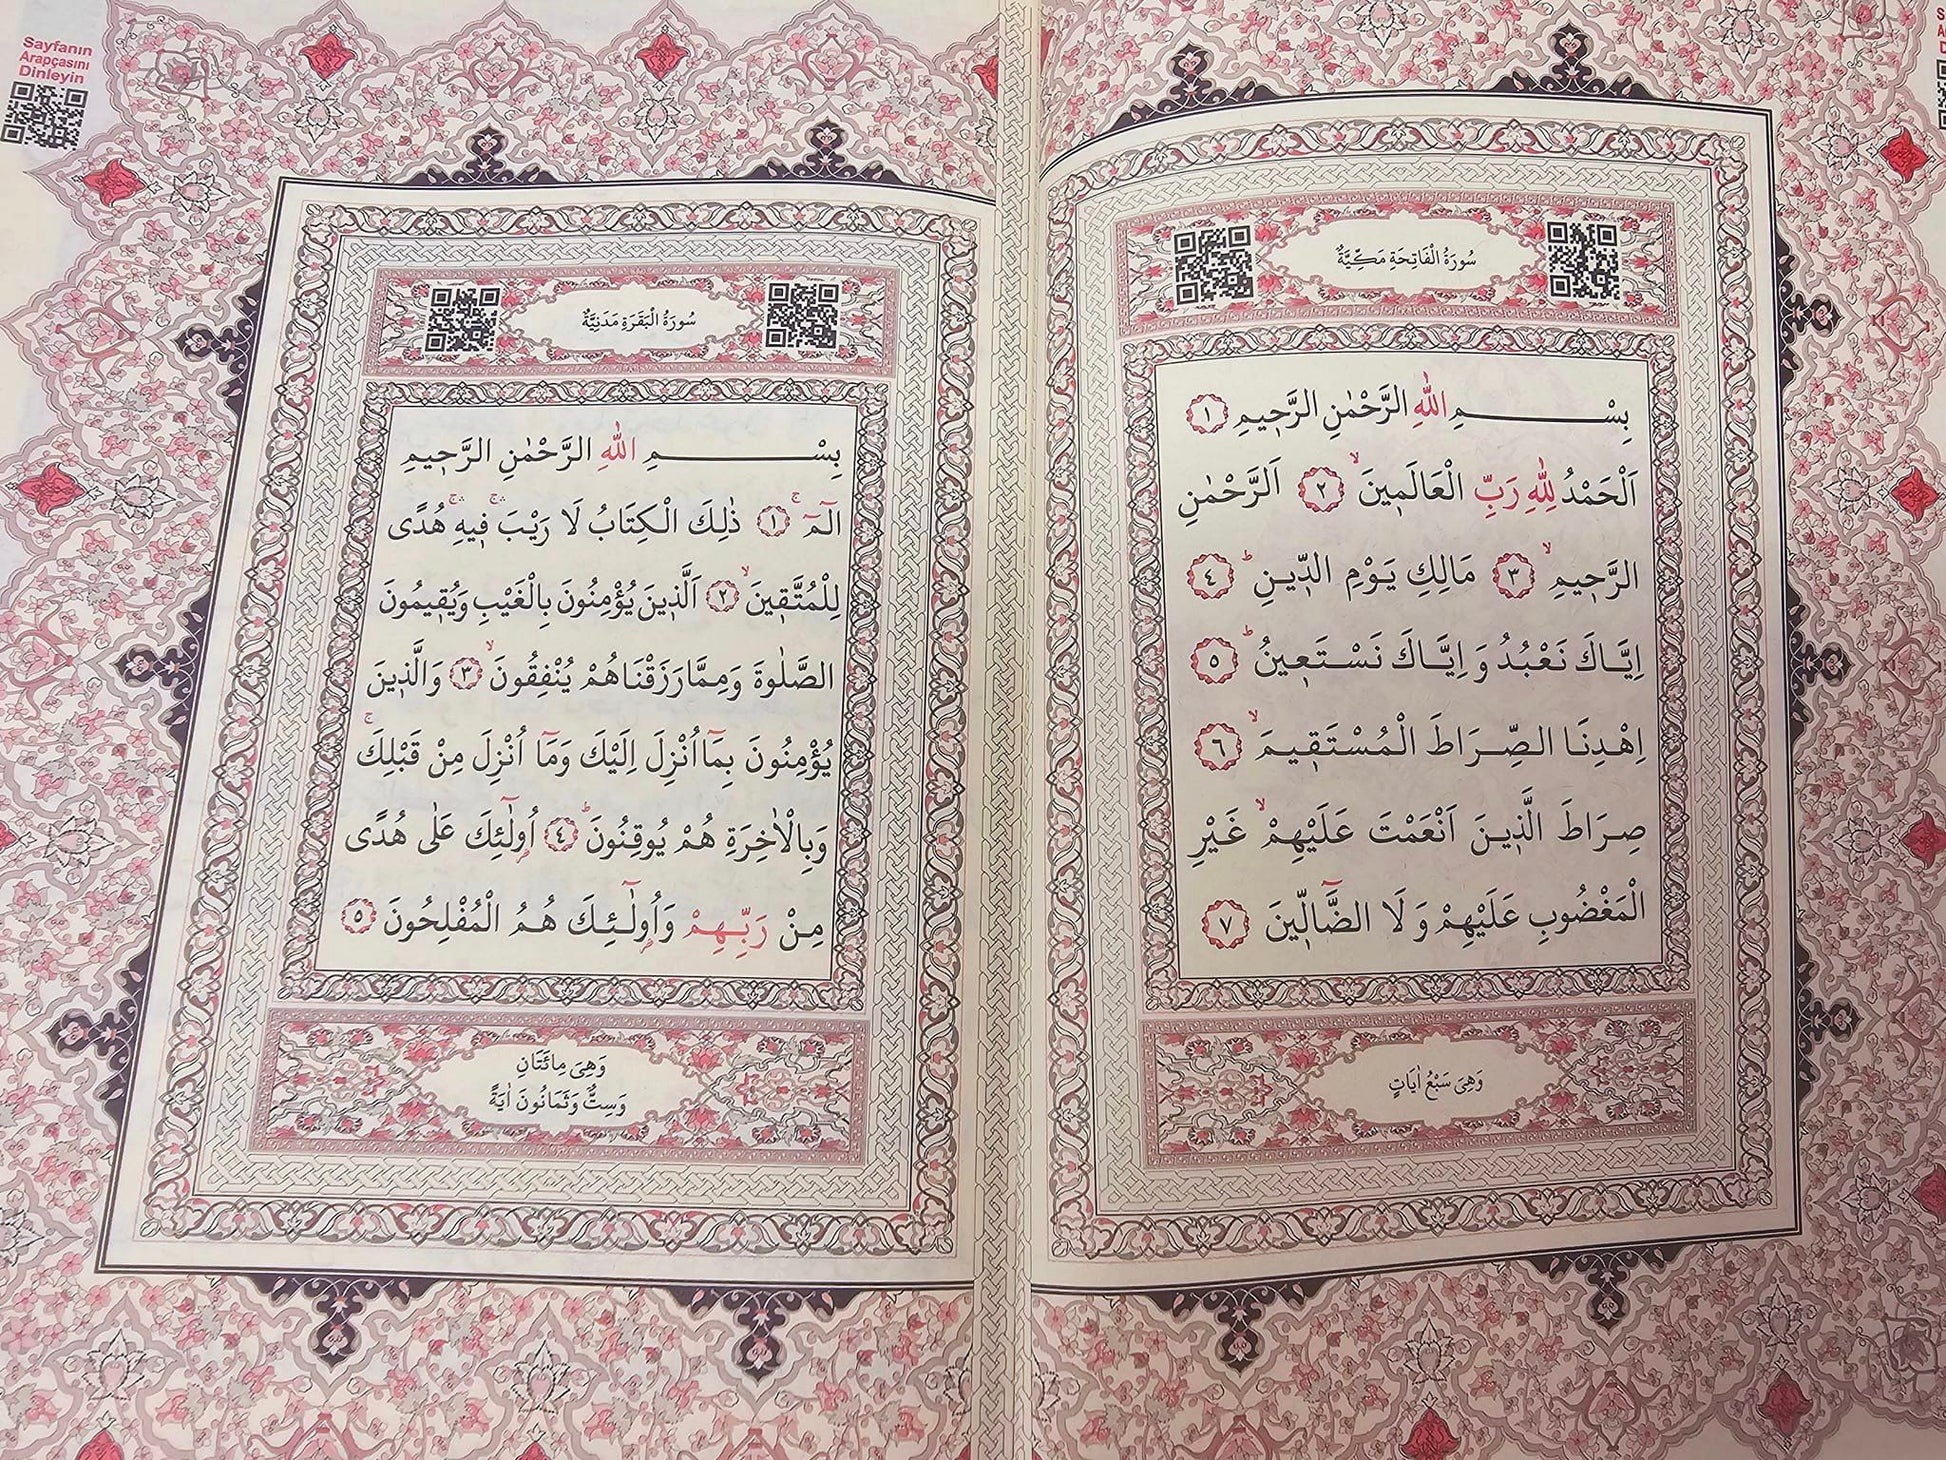 سُورَةُ الْفَاتِحَةِ مَكِّيَّةٌ
بِسْمِ اللّٰهِ الرَّحْمٰنِ الرَّح۪يمِ ١
اَلْحَمْدُ لِلّٰهِ رَبِّ الْعَالَم۪ينَۙ ٢ اَلرَّحْمٰنِ
الرَّح۪يمِۙ ٣ مَالِكِ يَوْمِ الدّ۪ينِۜ ٤
اِيَّاكَ نَعْبُدُ وَ اِيَّاكَ نَسْتَع۪ينُۜ ٥
اِهْدِنَا الصِّرَاطَ الْمُسْتَق۪يمَۙ ٦
صِرَاطَ الَّذ۪ينَ اَنْعَمْتَ عَلَيْهِمْۙ غَيْرِ
الْمَغْضُوبِ عَلَيْهِمْ وَ لَا الضَّٓالّ۪ينَ ٧
وَهِىَ سَبْعُ اٰيَاتٍ
Sayfanın
Arapçasını
Dinleyin
سُورَةُ الْبَقَرَةِ مَدَنِيَّةٌ
بِسْمِ اللّٰهِ الرَّحْمٰنِ الرَّح۪يمِ
الٓمٓۚ ١ ذٰلِكَ الْكِتَابُ لَا رَيْبَۚۛ ف۪يهِۚۛ هُدًى
لِلْمُتَّق۪ينَۙ ٢ اَلَّذ۪ينَ يُؤْمِنُونَ بِالْغَيْبِ وَيُق۪يمُونَ
الصَّلٰوةَ وَمِمَّا رَزَقْنَاهُمْ يُنْفِقُونَۙ ٣ وَالَّذ۪ينَ
يُؤْمِنُونَ بِمَٓا اُنْزِلَ اِلَيْكَ وَمَٓا اُنْزِلَ مِنْ قَبْلِكَۚ
وَبِالْاٰخِرَةِ هُمْ يُوقِنُونَۜ ٤ اُو۬لٰٓئِكَ عَلٰى هُدًى
مِنْ رَبِّهِمْ وَاُو۬لٰٓئِكَ هُمُ الْمُفْلِحُونَ ٥
وَهِىَ مِائَتَانِ
وَسِتٌّ وَثَمَانُونَ اٰيَةً